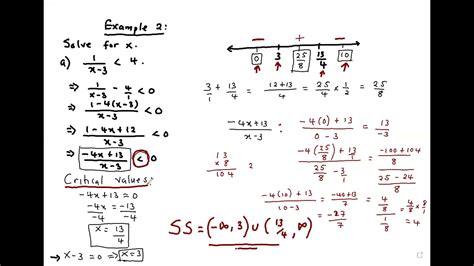 Example 2:
Solve for x.
a) 1/(x-3) < 4.
⇒ 1/(x-3) - 4/1 < 0
⇒ (1-4(x-3))/(x-3) < 0
⇒ (1-4x+12)/(x-3) < 0
⇒ (-4x+13)/(x-3) < 0
Critical values:
-4x+13=0
-4x/-4 = -13/-4
x = 13/4
→ x-3 = 0 ⇒ x=3
- + -
0 3 25/8 13/4 10
3/1 + 13/4 = (12+13)/4 = 25/4 × 1/2 = 25/8
(-4x+13)/(x-3) : (-4(0)+13)/(0-3) = 13/-3
13
×8
104
(-4(25/8)+13/1)/(25/8-3/1) = (-100+104)/(25-24)
(-4(10)+13)/(10-3) = (-40+13)/7
= -27/7
(4/8)/(1/8) = 4/8 × 8/1
= 4
SS = (-∞, 3) ∪ (13/4, ∞)